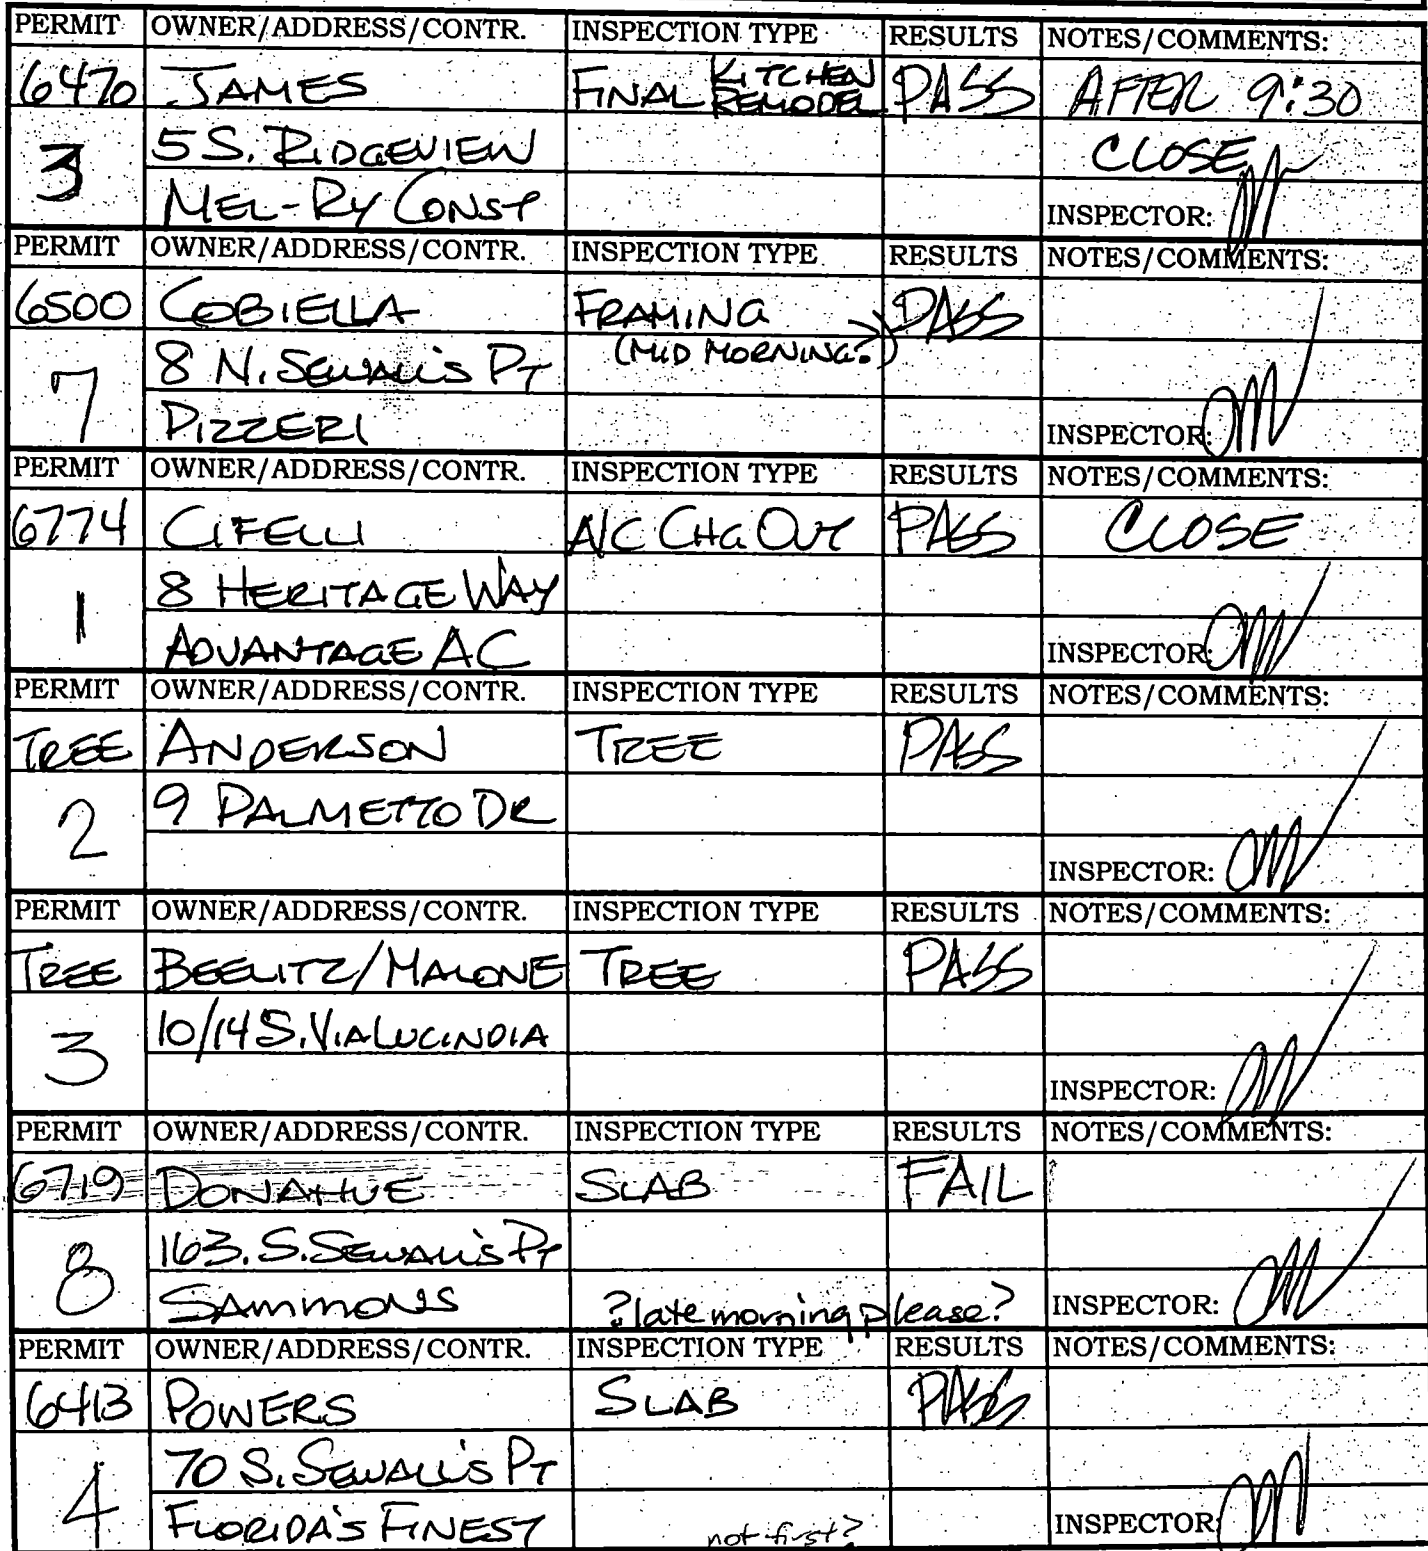 PERMIT OWNER/ADDRESS/CONTR. INSPECTION TYPE RESULTS NOTES/COMMENTS:
6470 JAMES FINAL KITCHEN REMODEL PASS AFTER 9:30
3 5 S. RIDGEVIEW CLOSE
MEL-RY CONST INSPECTOR:
PERMIT OWNER/ADDRESS/CONTR. INSPECTION TYPE RESULTS NOTES/COMMENTS:
6500 COBIELLA FRAMING PASS
7 8 N. SEWALL'S PT (MID MORNING?)
PIZZERI INSPECTOR:
PERMIT OWNER/ADDRESS/CONTR. INSPECTION TYPE RESULTS NOTES/COMMENTS:
6774 CIFELLI A/C CHG OUT PASS CLOSE
1 8 HERITAGE WAY
ADVANTAGE AC INSPECTOR:
PERMIT OWNER/ADDRESS/CONTR. INSPECTION TYPE RESULTS NOTES/COMMENTS:
TREE ANDERSON TREE PASS
2 9 PALMETTO DR
INSPECTOR:
PERMIT OWNER/ADDRESS/CONTR. INSPECTION TYPE RESULTS NOTES/COMMENTS:
TREE BEELITZ/MALONE TREE PASS
3 10/14 S. VIA LUCINDIA
INSPECTOR:
PERMIT OWNER/ADDRESS/CONTR. INSPECTION TYPE RESULTS NOTES/COMMENTS:
6719 DONAHUE SLAB FAIL
8 163. S. SEWALL'S PT
SAMMONS ?late morning please? INSPECTOR:
PERMIT OWNER/ADDRESS/CONTR. INSPECTION TYPE RESULTS NOTES/COMMENTS:
6413 POWERS SLAB PASS
4 70 S. SEWALL'S PT
FLORIDA'S FINEST not first? INSPECTOR: